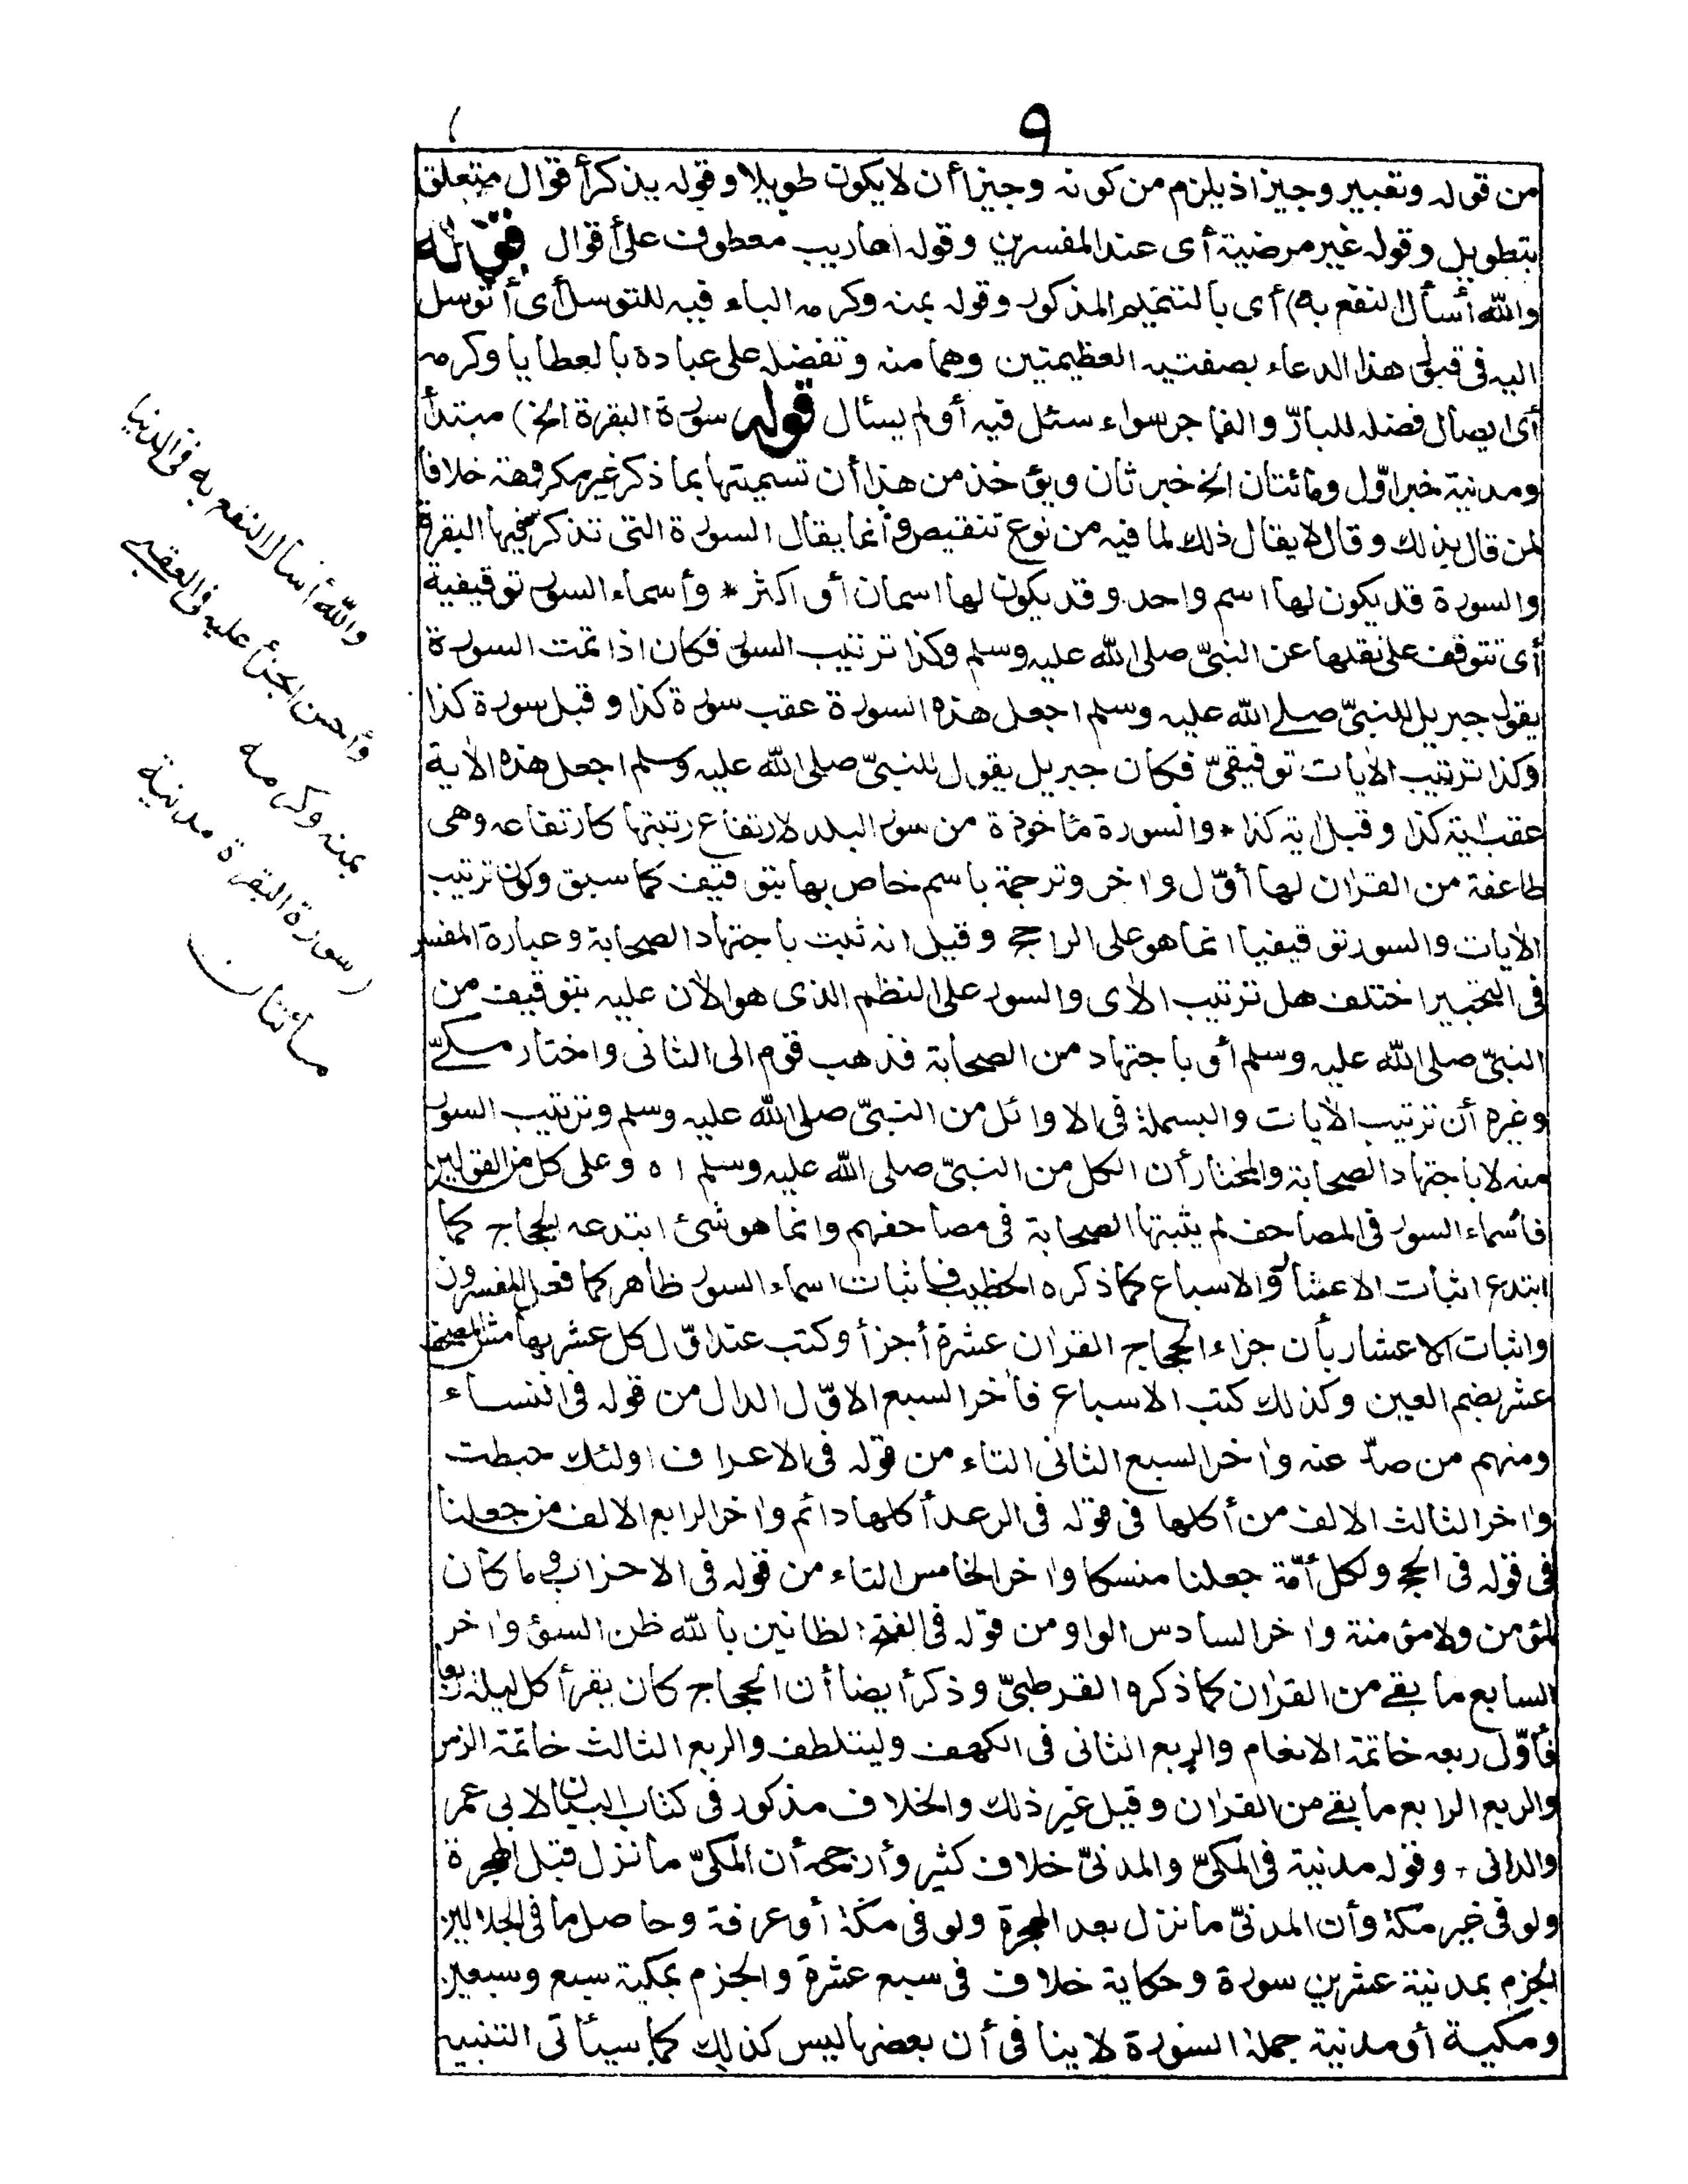 ٩
من قوله وتعبير وجيز اذ يلزم من كونه وجيزا أن لا يكون طويلا وقوله بذكر أقوال متعلق
بتطويل وقوله غير مرضية أى عند المفسرين وقوله اعاريب معطوف على أقوال قوله
والله أسأل النفع به) أى بالتتميم المذكور وقوله بمنه وكرمه الباء فيه للتوسل أى أتوسل
اليه فى قبول هذا الدعاء بصفتيه العظيمتين وهما منه وتفضله على عباده بالعطايا وكرمه
أى ايصال فضله للبارّ والفاجر سواء سئل فيه أولم يسئال قوله سورة البقرة الخ) مبتدأ
ومدنية خبر اوّل ومائتان الخ خبر ثان ويؤخذ من هذا أن تسميتها بما ذكر غير مكروهة خلافا
لمن قال بذلك وقال لا يقال ذلك لما فيه من نوع تنقيص وأنما يقال السورة التى تذكر فيها البقرة
والسورة قد يكون لها اسم واحد وقد يكون لها اسمان أو اكثر * وأسماء السور توقيفية
أى تتوقف على نقلها عن النبىّ صلى الله عليه وسلم وكذا ترتيب السور فكان اذا تمت السورة
يقول جبريل للنبىّ صلى الله عليه وسلم اجعل هذه السورة عقب سورة كذا وقبل سورة كذا
وكذا ترتيب الآيات توقيفىّ فكان جبريل يقول للنبىّ صلى الله عليه وسلم اجعل هذه الآية
عقب آية كذا وقبل آية كذا * والسورة مأخوذة من سور البلد لارتفاع رتبتها كارتفاعه وهى
طاعفة من القرآن لها أوّل وآخر وترجمة باسم خاص بها بتوقيف كما سبق وكون ترتيب
الآيات والسور توقيفيا انما هو على الراجح وقيل انه ثبت باجتهاد الصحابة وعبارة المفسر
فى التحبير اختلف هل ترتيب الآى والسور على النظم الذى هو الآن عليه بتوقيف من
النبىّ صلى الله عليه وسلم أو باجتهاد من الصحابة فذهب قوم الى الثانى واختار مكىّ
وغيره أن ترتيب الآيات والبسملة فى الاوائل من النبىّ صلى الله عليه وسلم وترتيب السور
منه لا باجتهاد الصحابة والمختار أن الكل من النبىّ صلى الله عليه وسلم ا ه وعلى كل من القولين
فأسماء السور فى المصاحف لم يثبتها الصحابة فى مصاحفهم وانما هو شئ ابتدعه الحجاج كما
ابتدع اثبات الاعشار والاسباع كما ذكره الخطيب فاثبات اسماء السور ظاهر كما فعل المفسرون
واثبات الاعشار بأن جزاء الحجاج القرآن عشرة أجزأ وكتب عند اوّل كل عشر بهامش المصحف
عشر بضم العين وكذلك كتب الاسباع فآخر السبع الاوّل الدال من قوله فى النساء
ومنهم من صدّ عنه وآخر السبع الثانى التاء من قوله فى الاعراف اولئك حبطت
وآخر الثالث الالف من أكلها فى قوله فى الرعد أكلها دائم وآخر الرابع الالف من جعلنا
فى قوله فى الحج ولكل أمّة جعلنا منسكا وآخر الخامس التاء من قوله فى الاحزاب وما كان
لمؤمن ولا مؤمنة وآخر السادس الواو من قوله فى الفتح الظانين بالله ظن السوء وآخر
السابع ما بقى من القرآن كما ذكره القرطبىّ وذكر أيضا أن الحجاج كان يقرأ كل ليلة ربعا
فأوّل ربعه خاتمة الانعام والربع الثانى فى الكهف وليتلطف والربع الثالث خاتمة الزمر
والربع الرابع ما بقى من القرآن وقيل غير ذلك والخلاف مذكور فى كتاب البيان لابى عمر
والدانى * وقوله مدنية فى المكىّ والمدنىّ خلاف كثير وأرجحه أن المكىّ ما نزل قبل الهجرة
ولو فى غير مكة وأن المدنىّ ما نزل بعد الهجرة ولو فى مكة أو عرفة وحاصل ما فى الجلالين
الجزم بمدنية عشرين سورة وحكاية خلاف فى سبع عشرة والجزم بمكية سبع وسبعين
ومكية أو مدنية جملة السورة لا ينافى أن بعضها ليس كذلك كما سيأتى التنبيه
والله أسأل النفع به فى الدنيا
وأحسن الجزأ عليه فى العقبى
بمنه وكرمه
(سورة البقرة مدنية
مائتان